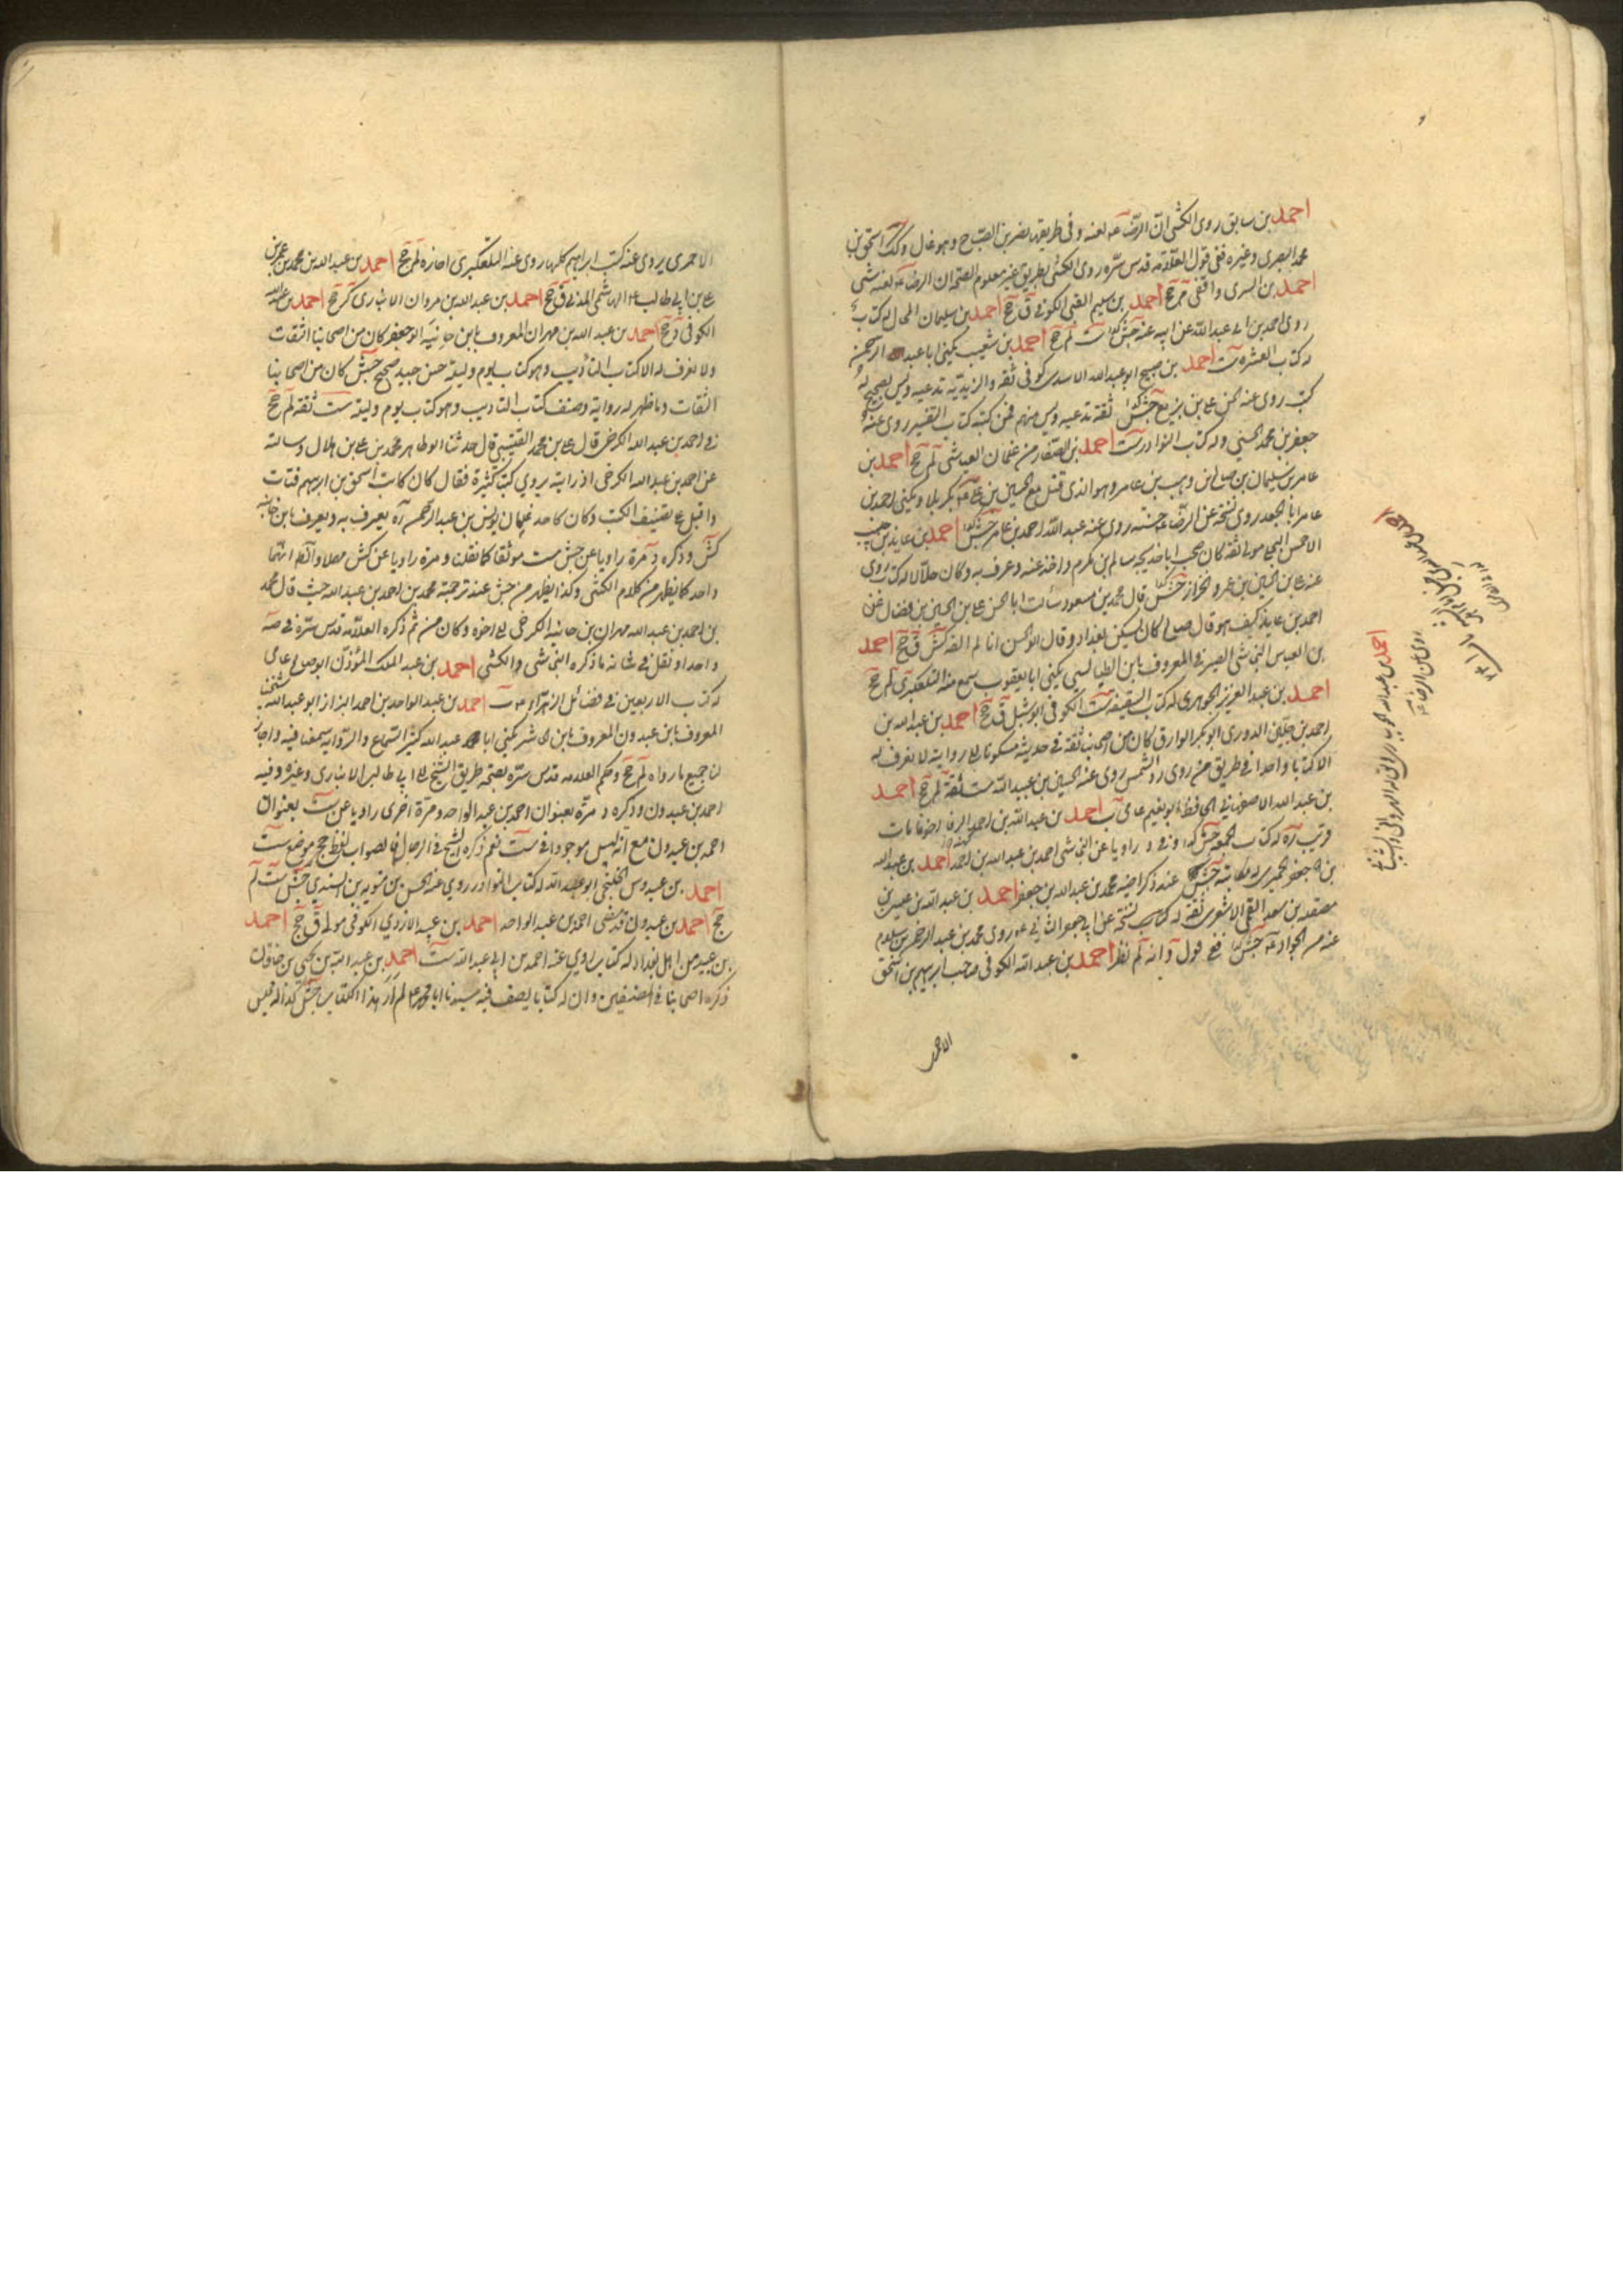 احمد بن سابق روى الكشى انّ الرضا عه لعنه وفى طريقه نصر بن الصباح وهو غال وكك اسحق بن
محمد البصرى وغيره ففى قول العلّامه قدس سرّه روى الكشى بطريق غير معلوم الصحة ان الرضا عه لعنه شئ
احمد بن السرى واقفى م جخ احمد بن سليم القبى الكوفى ق جخ احمد بن سليمان الحمال له كتاب
روى احمد بن ابى عبد الله عن ابيه عنه جش ست لم جخ احمد بن شعيب يكنى ابا عبد الرحمن
له كتاب العشرة ست احمد بن صبيح ابو عبد الله الاسدى كوفى ثقه والزيديّه تدعيه وليس بصحيح له
كتب روى عنه الحسن على بن بزيع جش ثقة تدعيه وليس منهم فمن كتبه كتاب التفسير روى عنه
جعفر بن محمد الحسنى وله كتاب النوادر ست احمد بن الصفار من غلمان العياشى لم جخ احمد بن
عامر بن سليمان بن صالح بن وهب بن عامر وهو الذى قتل مع الحسين بن على عه بكربلا ويكنى احمد بن
عامر ابا الجعد روى نسخه عن الرضا عه حسنه روى عنه عبد الله احمد بن عامر جش احمد بن عايذ بن حبيب
الاحمسى البجلى مولى ثقه كان صحب ابا خديجه سالم بن مكرم واخذ عنه وعرف به وكان حلّالا له كتاب روى
عنه على بن الحسين بن عمرو الخزاز جش قال محمد بن مسعود سألت ابا الحسن على بن الحسن بن فضال عن
احمد بن عايذ كيف هو قال صالح كان يسكن بغداد وقال ابو الحسن انا لم القه كش ق جخ احمد
بن العباس النجاشى الصيرفى المعروف بابن الطيالسى يكنى ابا يعقوب سمع منه التلعكبرى لم جخ
احمد بن عبد العزيز الجوهرى له كتاب السقيفة ست الكوفى ابو شبل ق جخ احمد بن عبد الله بن
احمد بن جلين الدورى ابو بكر الوراق كان من اصحابنا ثقة فى حديثه مسكونا الى روايته لا نعرف له
الا كتابا واحدا فى طريق من روى ردّ الشمس روى عنه الحسين بن عبيد الله ست ثقة لم جخ احمد
بن عبد الله الاصفهانى الحافظ ابو نعيم عامى ب احمد بن عبد الله بن احمد الرفا اخونا مات
قريب ره له كتاب الجمعة جش كذا وفى د راويا عن النجاشى احمد بن عبد الله بن احمد احمد بن عبد الله
بن جعفر الحميرى له مكاتبة جش عند ذكر اخيه محمد بن عبد الله بن جعفر احمد بن عبد الله بن عيسى بن
مصقله بن سعد القمى الاشعرى ثقة له كتاب نسخة عن ابى جعفر الثانى عه روى محمد بن عبد الرحمن بن سلام
عنه عن الجواد عه جش ففى قول د انه لم نظر احمد بن عبد الله الكوفى صاحب ابرهيم بن اسحق
الاحمر
احمد بن عبد الله
روى عن الرضا عه
الاحمرى يروى عنه كتب ابراهيم كلها روى عنه التلعكبرى اجازه لم جخ احمد بن عبد الله بن محمد بن عمر بن
على بن ابى طالب عه الهاشمى المدنى ق جخ احمد بن عبد الله بن مروان الانبارى كر جخ احمد بن عبد الله
الكوفى د جخ احمد بن عبد الله بن مهران المعروف بابن خانبة ابو جعفر كان من اصحابنا الثقات
ولا نعرف له الا كتاب التأديب وهو كتاب يوم وليلة حسن جيد صحيح جش كان من اصحابنا
الثقات وما ظهر له رواية وصنف كتاب التاديب وهو كتاب يوم وليلة ست ثقة لم جخ
فى احمد بن عبد الله الكرخى قال على بن محمد القتيبى قال حدثنا ابو طاهر محمد بن على بن بلال وسالته
عن احمد بن عبد الله الكرخى اذ رايته يروي كتبا كثيرة فقال كان كاتب اسحق بن ابرهيم فتاب
واقبل على تصنيف الكتب وكان كاحد غلمان يونس بن عبد الرحمن ره يعرف به ويعرف بابن خانبه
كش وذكره د مرة راويا عن جش ست موثقا كما نقلن ومرة راويا عن كش مهملا والظ انهما
واحد كما يظهر من كلام الكشى وكذا يظهر من جش عند ترجمة محمد بن احمد بن عبد الله حيث قال محمد
بن احمد بن عبد الله مهران بن خانبه الكرخى الى اخره وكان من ثم ذكره العلّامه قدس سرّه فى صه
واحدا ونقل فى شانه ما ذكره النجاشى والكشى احمد بن عبد الملك المؤذّن ابو صالح عامى
له كتاب الاربعين فى فضائل الزهراء عه ب احمد بن عبد الواحد بن احمد البزاز ابو عبد الله شيخنا
المعروف بابن عبدون المعروف بابن الحاشر يكنى ابا عبد الله كثير السماع والرواية سمعنا منه واجاز
لنا جميع ما رواه لم جخ وحكم العلامه قدس سرّه بصحة طريق الشيخ الى ابى طالب الانبارى وغيره وفيه
احمد بن عبدون وذكره د مرّة بعنوان احمد بن عبد الواحد ومرّة اخرى راويا عن ست بعنوان
احمد بن عبدون مع انه ليس موجودا فى ست نعم ذكره الشيخ فى الرجال فالصواب لفظ جخ موضع ست
احمد بن عبدوس الخلنجى ابو عبد الله له كتاب النوادر روي عنه الحسن بن متويه بن السندي جش ست لم
جخ احمد بن عبدون قد مضى احمد بن عبد الواحد احمد بن عبيد الازدي الكوفى مولى ق جخ احمد
بن عبيد من اهل بغداد له كتاب راوي عنه احمد بن ابى عبد الله ست احمد بن عبد الله بن يحيى بن خاقان
ذكره اصحابنا فى المصنفين وان له كتابا يصف فيه سيدنا ابا محمد عه لم ار هذا الكتاب جش كذا له مجلس